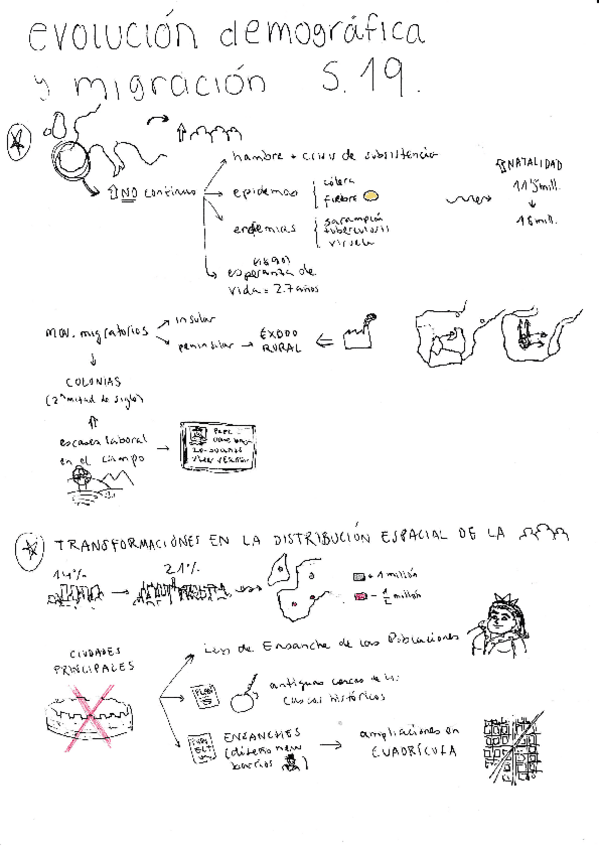 evolución demográfica
y migración S.19.
hambre + crisis de subsistencia
⇑ NO continuo
epidemias
cólera
fiebre
endemias
sarampión
tuberculosis
viruela
esperanza de
vida = 27 años
⇑ NATALIDAD
11'5 mill.
↓
18 mill.
mov. migratorios
insular
peninsular → ÉXODO
RURAL
COLONIAS
(2ª mitad de siglo)
escasez laboral
en el campo
TRANSFORMACIONES EN LA DISTRIBUCIÓN ESPACIAL DE LA
14%
21%
+ 1 millón
- 1/2 millón
CIUDADES
PRINCIPALES
Ley de Ensanche de las Poblaciones
antiguas cercas de
cascos históricos
ENSANCHES
(diseño new
barrios
ampliaciones en
CUADRÍCULA